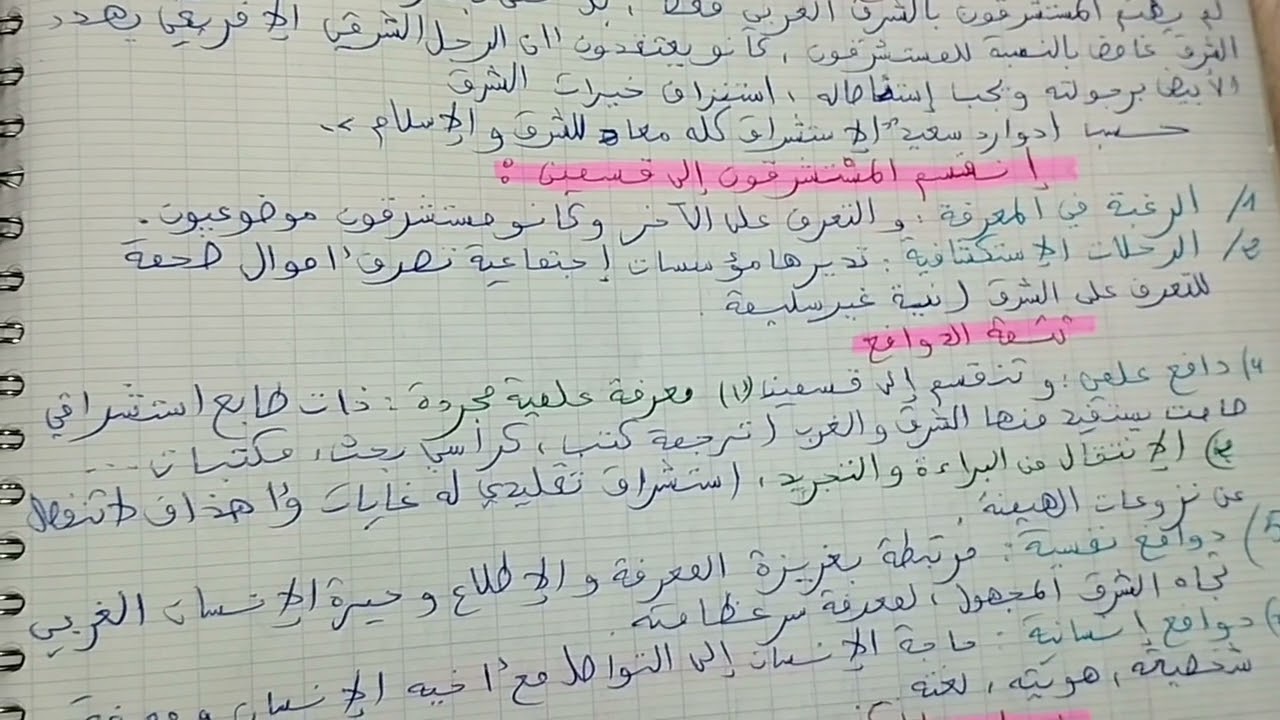 لم يهتم المستشرقون بالشرق العربي فقط، بل
الشرق غامض بالنسبة للمستشرقون، كانو يعتقدون "ان الرجل الشرقي الإفريقي يهدد
الأبيض برجولته ويجب إستئصاله، استنزاف خيرات الشرق
حسب إدوارد سعيد "الإستشراق كله معاد للشرق والإسلام".
إنقسم المستشرقون إلى قسمين:
1/ الرغبة في المعرفة: والتعرف على الآخر وكانو مستشرقون موضوعيون.
2/ الرحلات الإستكشافية: تديرها مؤسسات إجتماعية تصرف أموال ضخمة
للتعرف على الشرق (نية غير سليمة
تتمة الدوافع
4) دافع علمي: وتنقسم إلى قسمين (1) معرفة علمية مجردة: ذات طابع استشراقي
صامت يستفيد منها الشرق والغرب (ترجمة كتب، كراسي بحث، مكتبات ...
2) الإنتقال من البراءة والتجريد، استشراق تقليدي له غايات وأهداف لا تنفصل
عن نزوعات الهيمنة.
5) دوافع نفسية: مرتبطة بغريزة المعرفة والإطلاع وحيرة الإنسان الغربي
تجاه الشرق المجهول، لمعرفة سر عظامته.
دوافع إنسانية: حاجة الإنسان إلى التواصل مع أخيه الإنسان ومعرفة
شخصيته، هويته، لغته.